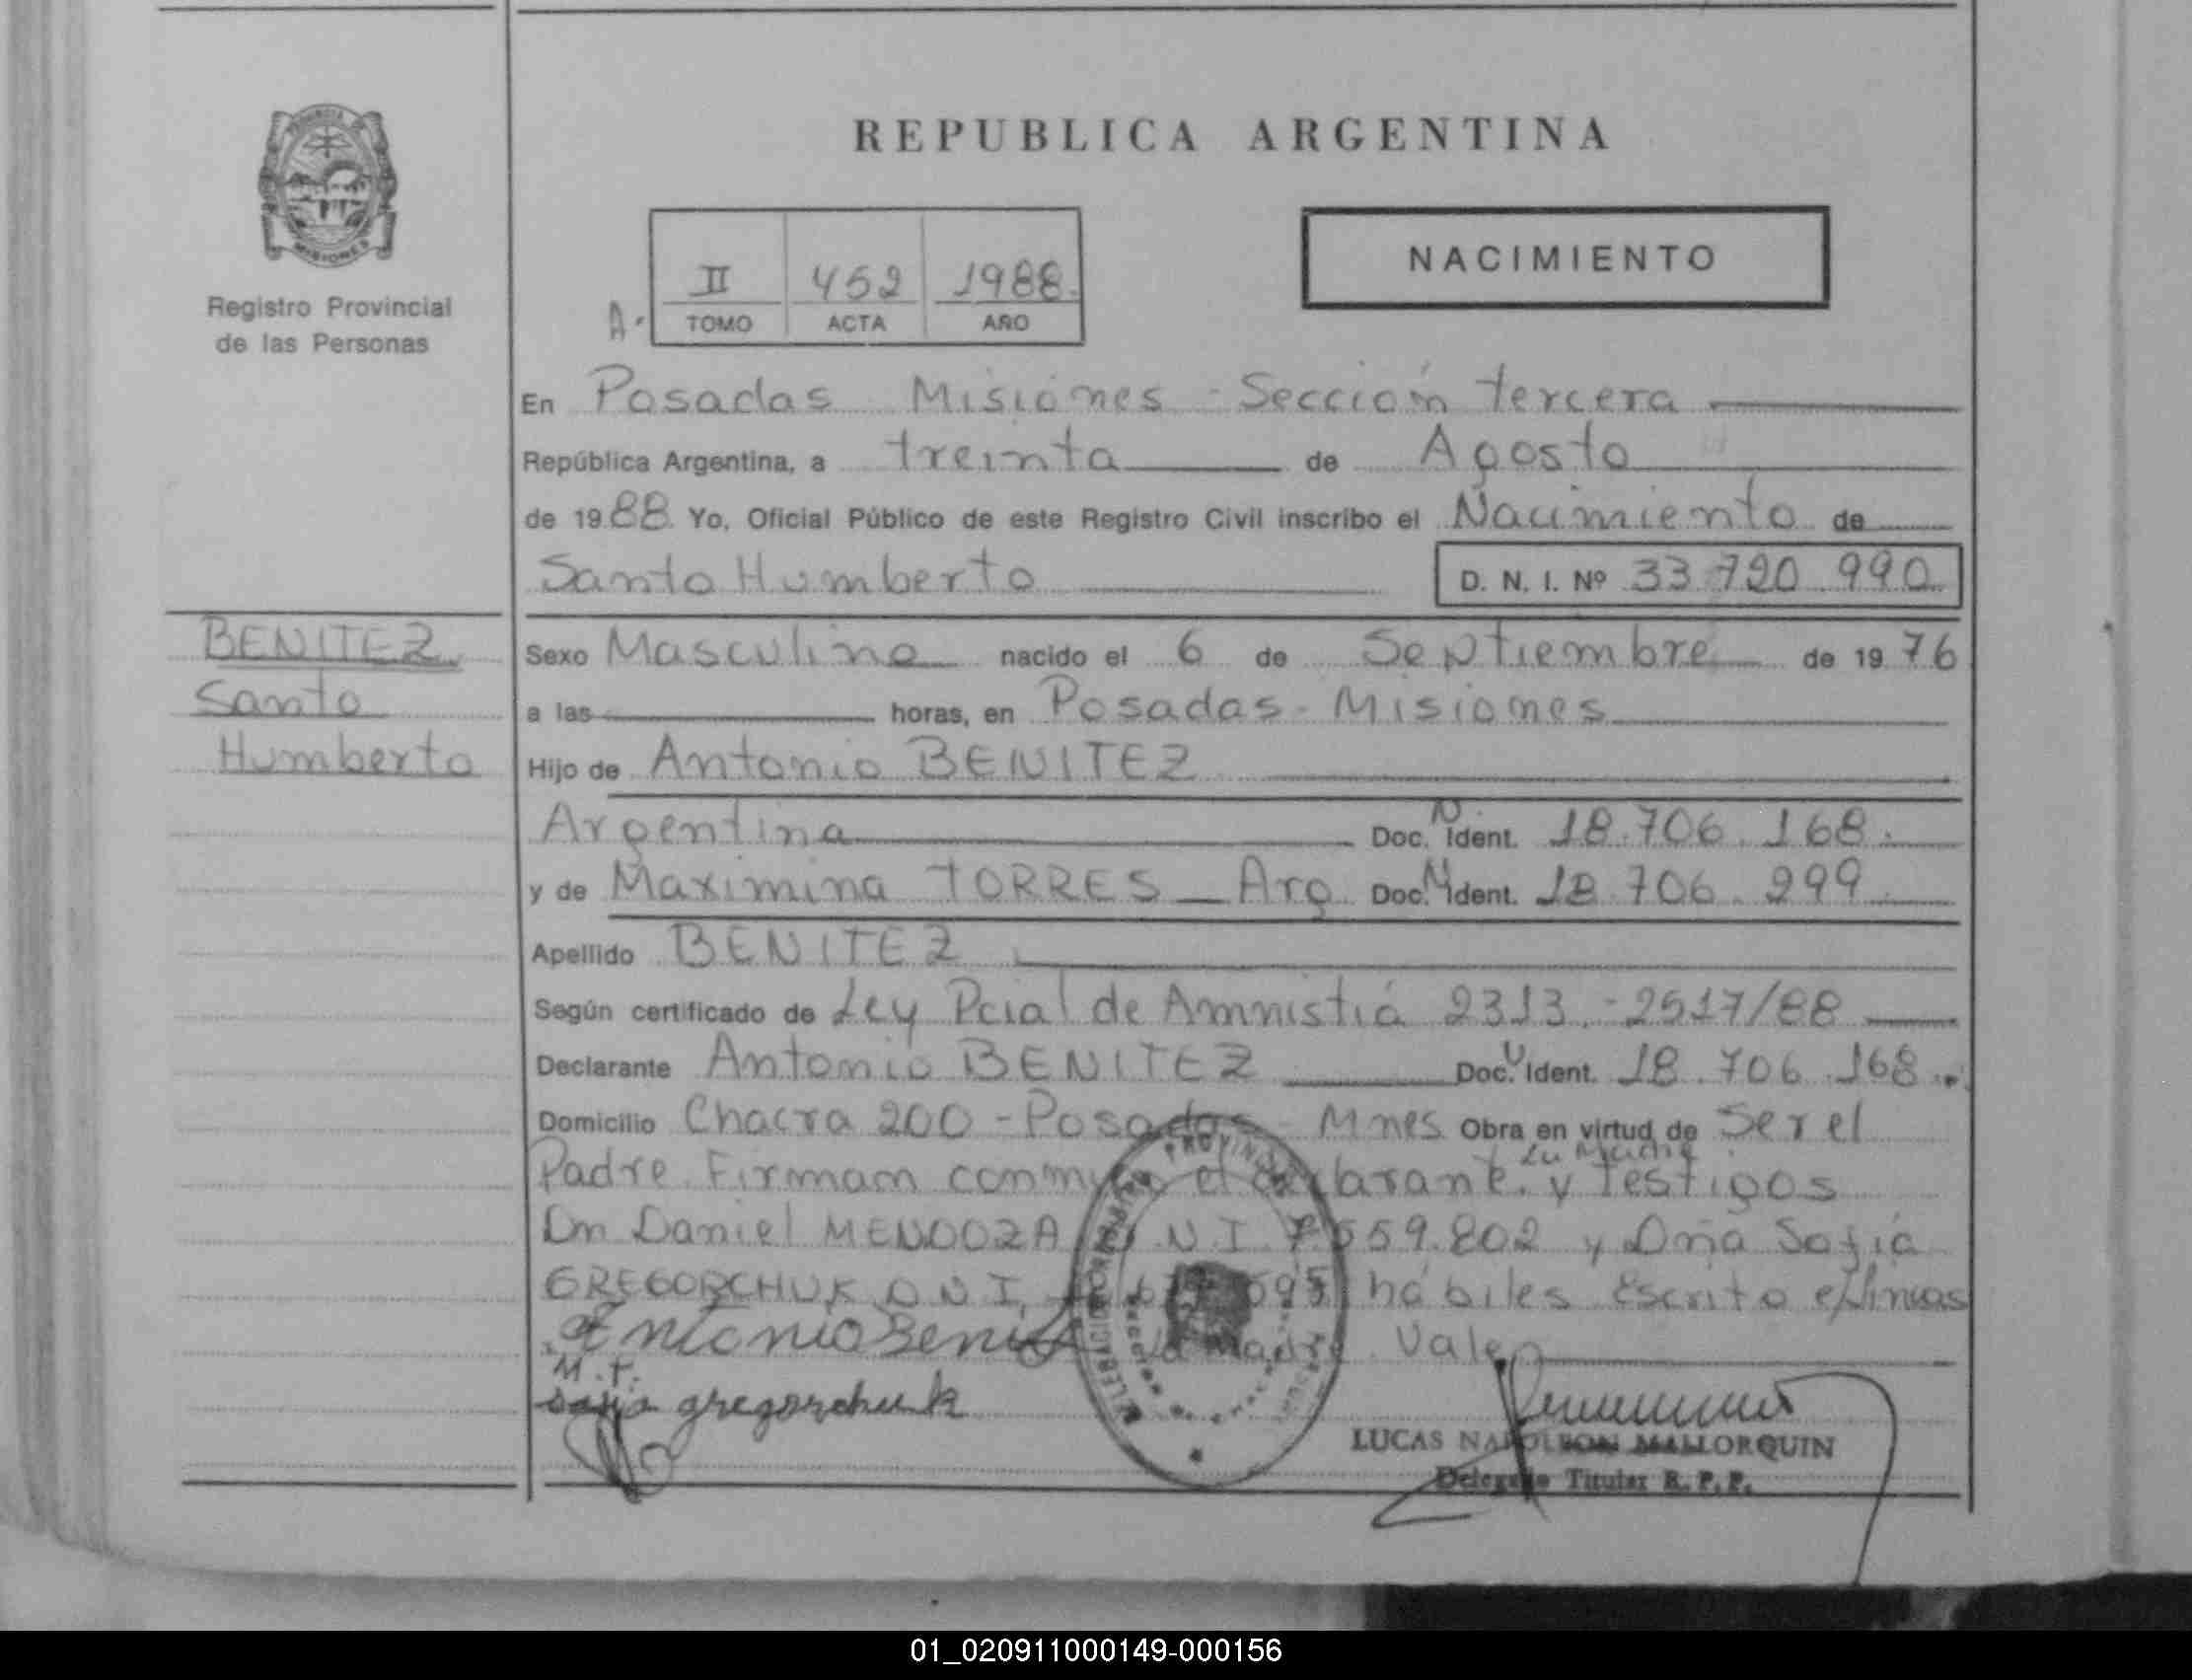 REPUBLICA ARGENTINA
MISIONES
Registro Provincial
de las Personas
II 452 1988
A. TOMO ACTA AÑO
NACIMIENTO
En Posadas Misiones - Sección tercera
República Argentina, a treinta de Agosto
de 1988 Yo, Oficial Público de este Registro Civil inscribo el Nacimiento de
Santo Humberto D. N. I. Nº 33 720 990
BENITEZ
Santo
Humberto
Sexo Masculino nacido el 6 de Septiembre de 1976
a las horas, en Posadas - Misiones
Hijo de Antonio BENITEZ
Argentina Doc. N. Ident. 18.706.168.
y de Maximina TORRES _ Arg Doc. N Ident. 18.706.299
Apellido BENITEZ
Según certificado de Ley Pcial de Amnistiá 2313.-2517/88
Declarante Antonio BENITEZ Doc. Ident. 18.706.168.
Domicilio Chacra 200 - Posadas - Mnes Obra en virtud de Ser el
La Madre
Padre. Firman el y Testigos
Dn Daniel MENDOZA D.N.I 559.802 y Dña Sofiá
GREGORCHUK D N I, hábiles Escrito e/lineas
Antonio Benitez La Madre. Vale
M.T.
Sofia gregorchuk
LUCAS NAPOLEON MALLORQUIN
Delegado Titular R. P. P.
01_020911000149-000156